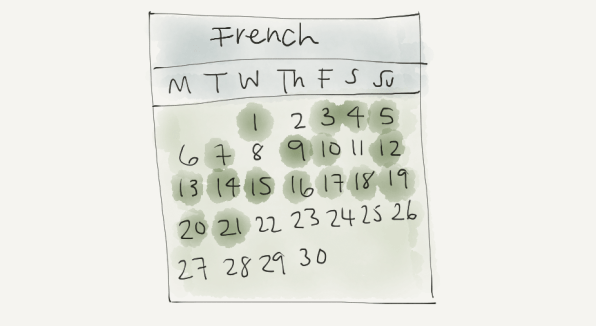 French
M T W Th F S Su
1 2 3 4 5
6 7 8 9 10 11 12
13 14 15 16 17 18 19
20 21 22 23 24 25 26
27 28 29 30